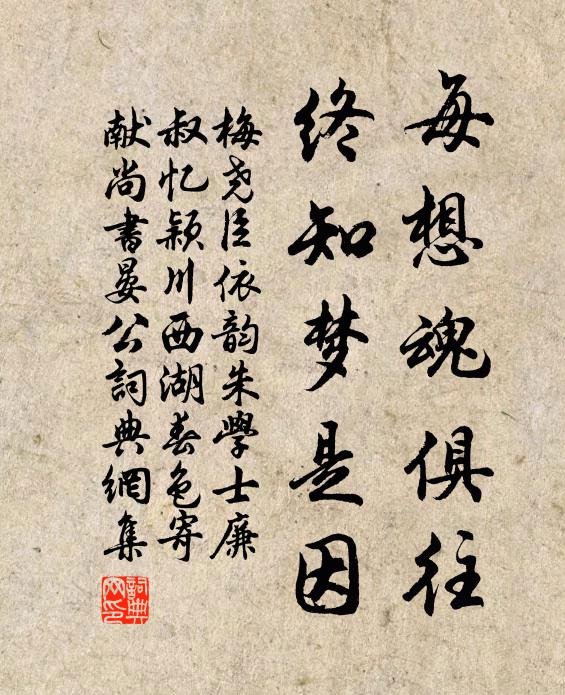 每想魂俱往
终知梦是因
梅尧臣依韵朱學士廉
叔忆颍川西湖春色寄
献尚書晏公詞典網集
詞典网印